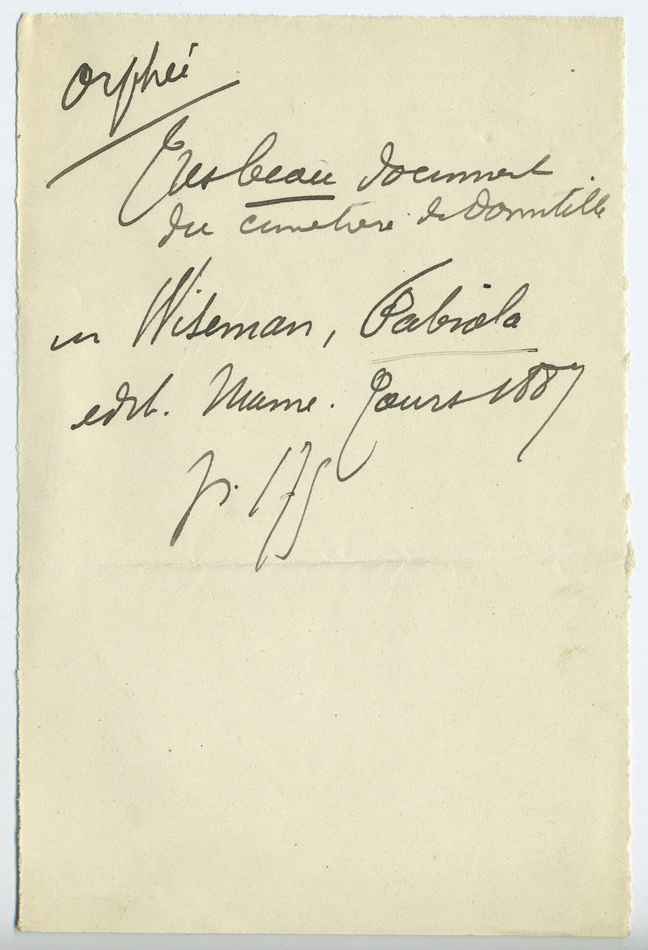 Orphée
Très beau document
du cimetière de Domitille
in Wiseman, Fabiola
edit. Mame. Tours 1887
p. 175